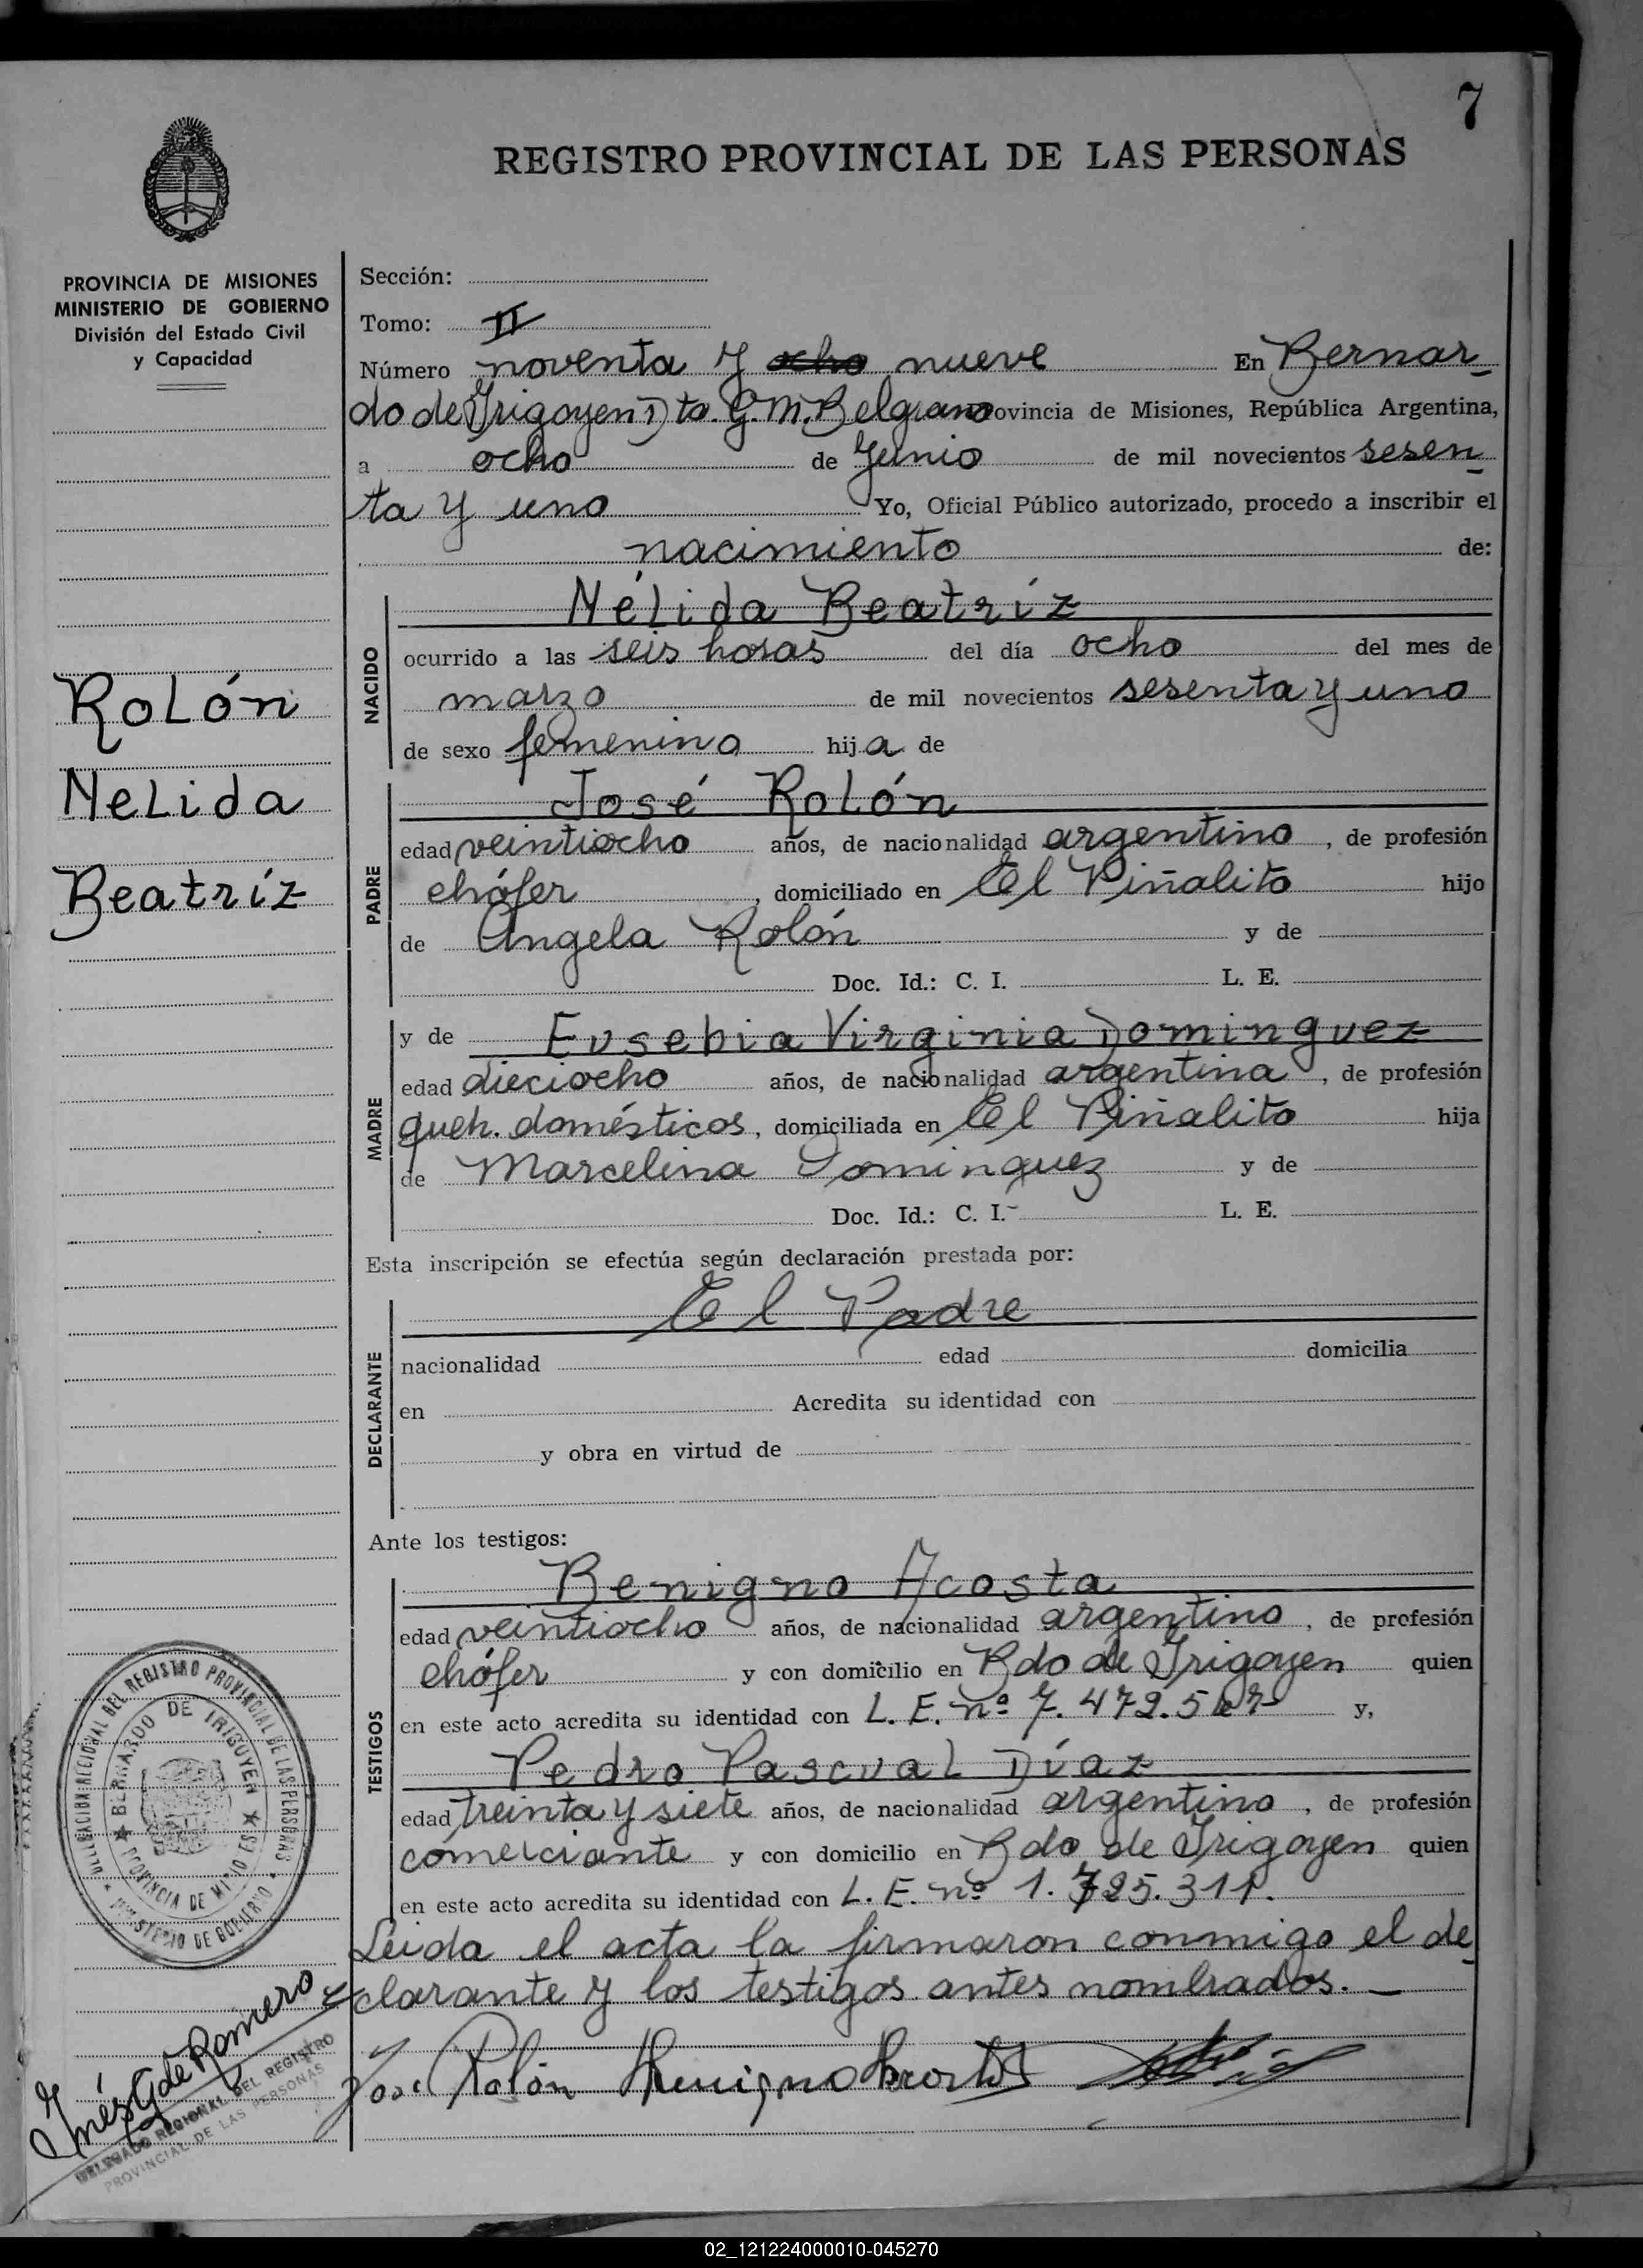 7
REGISTRO PROVINCIAL DE LAS PERSONAS
PROVINCIA DE MISIONES
MINISTERIO DE GOBIERNO
División del Estado Civil
y Capacidad
Rolón
Nelida
Beatríz
Sección:
Tomo: II
Número noventa y ocho nueve En Bernar
do de Irigoyen Dto. G. M. Belgrano ovincia de Misiones, República Argentina,
a ocho de Junio de mil novecientos sesen
ta y uno Yo, Oficial Público autorizado, procedo a inscribir el
nacimiento de:
NACIDO
Nélida Beatríz
ocurrido a las seis horas del día ocho del mes de
marzo de mil novecientos sesenta y uno
de sexo femenino hija de
PADRE
José Rolón
edad veintiocho años, de nacionalidad argentino, de profesión
chófer, domiciliado en El Piñalito hijo
de Angela Rolón y de
Doc. Id.: C. I. L. E.
MADRE
y de Eusebia Virginia Dominguez
edad dieciocho años, de nacionalidad argentina, de profesión
queh. domésticos, domiciliada en El Piñalito hija
de Marcelina Dominguez y de
Doc. Id.: C. I. L. E.
Esta inscripción se efectúa según declaración prestada por:
DECLARANTE
El Padre
nacionalidad edad domicilia
en Acredita su identidad con
y obra en virtud de
Ante los testigos:
TESTIGOS
Benigno Acosta
edad veintiocho años, de nacionalidad argentino, de profesión
chófer y con domicilio en Bdo de Irigoyen quien
en este acto acredita su identidad con L. E. nº 7.472. y,
Pedro Pascual Díaz
edad treinta y siete años, de nacionalidad argentino, de profesión
comerciante y con domicilio en Bdo de Irigoyen quien
en este acto acredita su identidad con L. E. nº 1.725.311.
Leida el acta la firmaron conmigo el de
clarante y los testigos antes nombrados.
José Rolón Benigno Acosta
DELEGACION REGIONAL DEL REGISTRO PROVINCIAL DE LAS PERSONAS
MINISTERIO DE GOBIERNO
BERNARDO DE IRIGOYEN
PROVINCIA DE MISIONES
Inés G de Romero
DELEGADO REGIONAL DEL REGISTRO
PROVINCIAL DE LAS PERSONAS
02_121224000010-045270